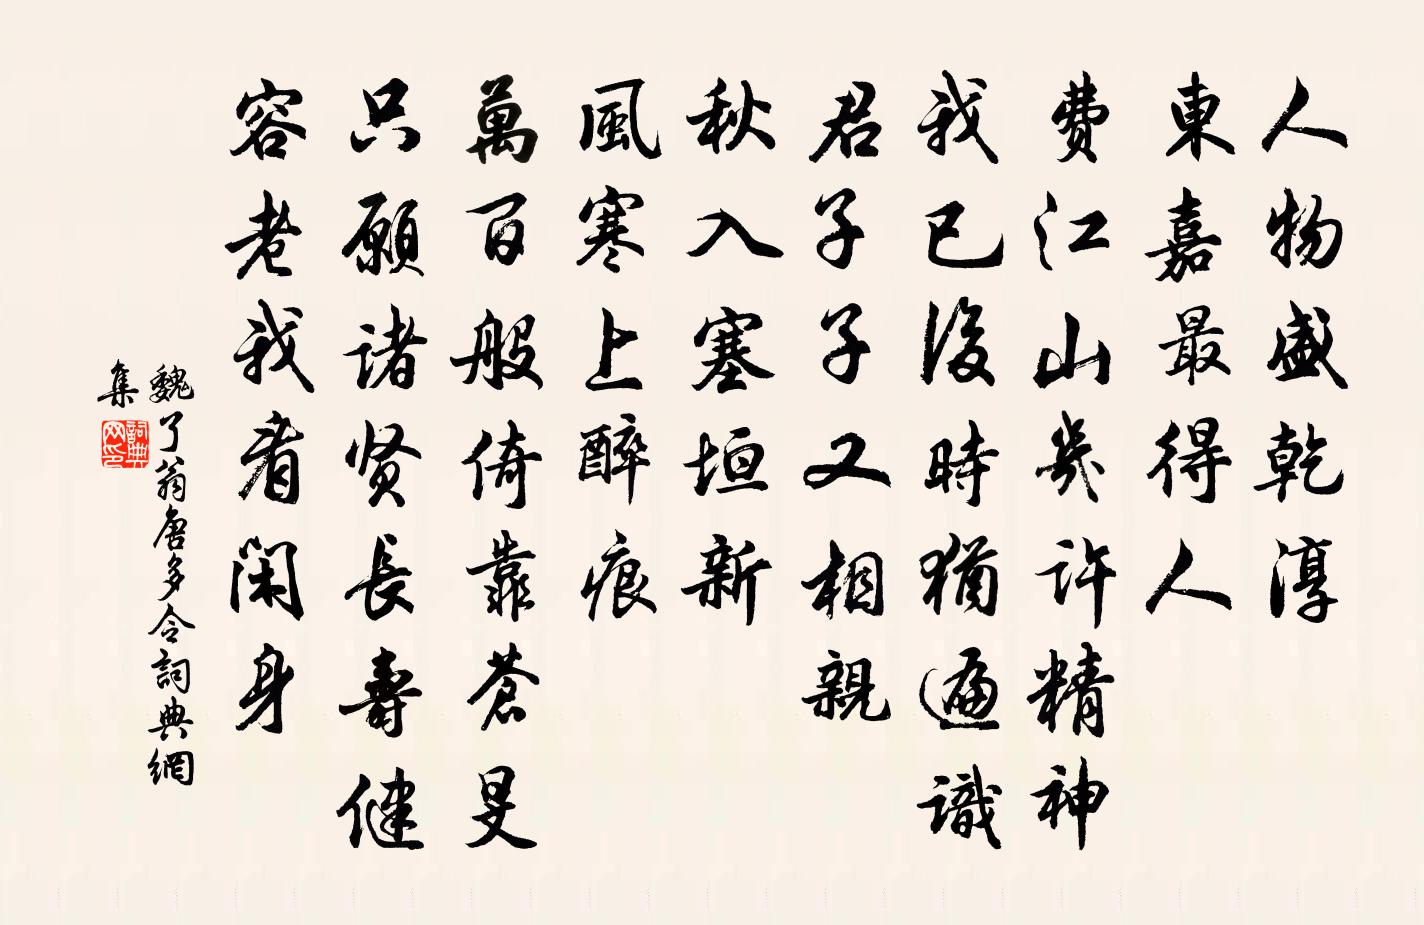 人物盛乾淳
東嘉最得人
費江山幾許精神
我已後時猶遍識
君子子又相親
秋入塞垣新
風寒上醉痕
萬百般倚靠蒼旻
只願諸贤長壽健
容老我看閑身
魏了翁唐多令詞典網
集
詞典网印